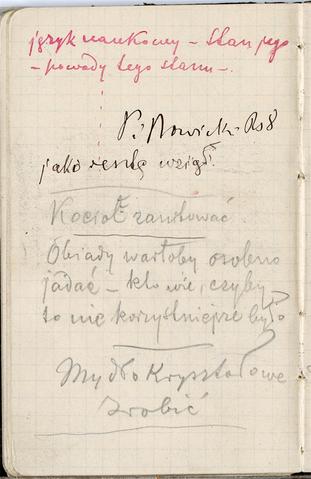 język naukowy – stan jego
– powody tego stanu –.
P. Nowick. Rs 8
jako resztę wziął.
Kocioł zanitować.
Obiady wartoby osobno
jadać – kto wie, czyby
to nie korzystniejsze było
Mydło Kryształowe
zrobić